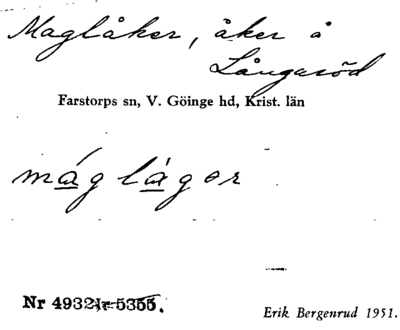 Maglåker, åker å
Långaröd
Farstorps sn, V. Göinge hd, Krist. län
máglágər
Nr 4932
Erik Bergenrud 1951.